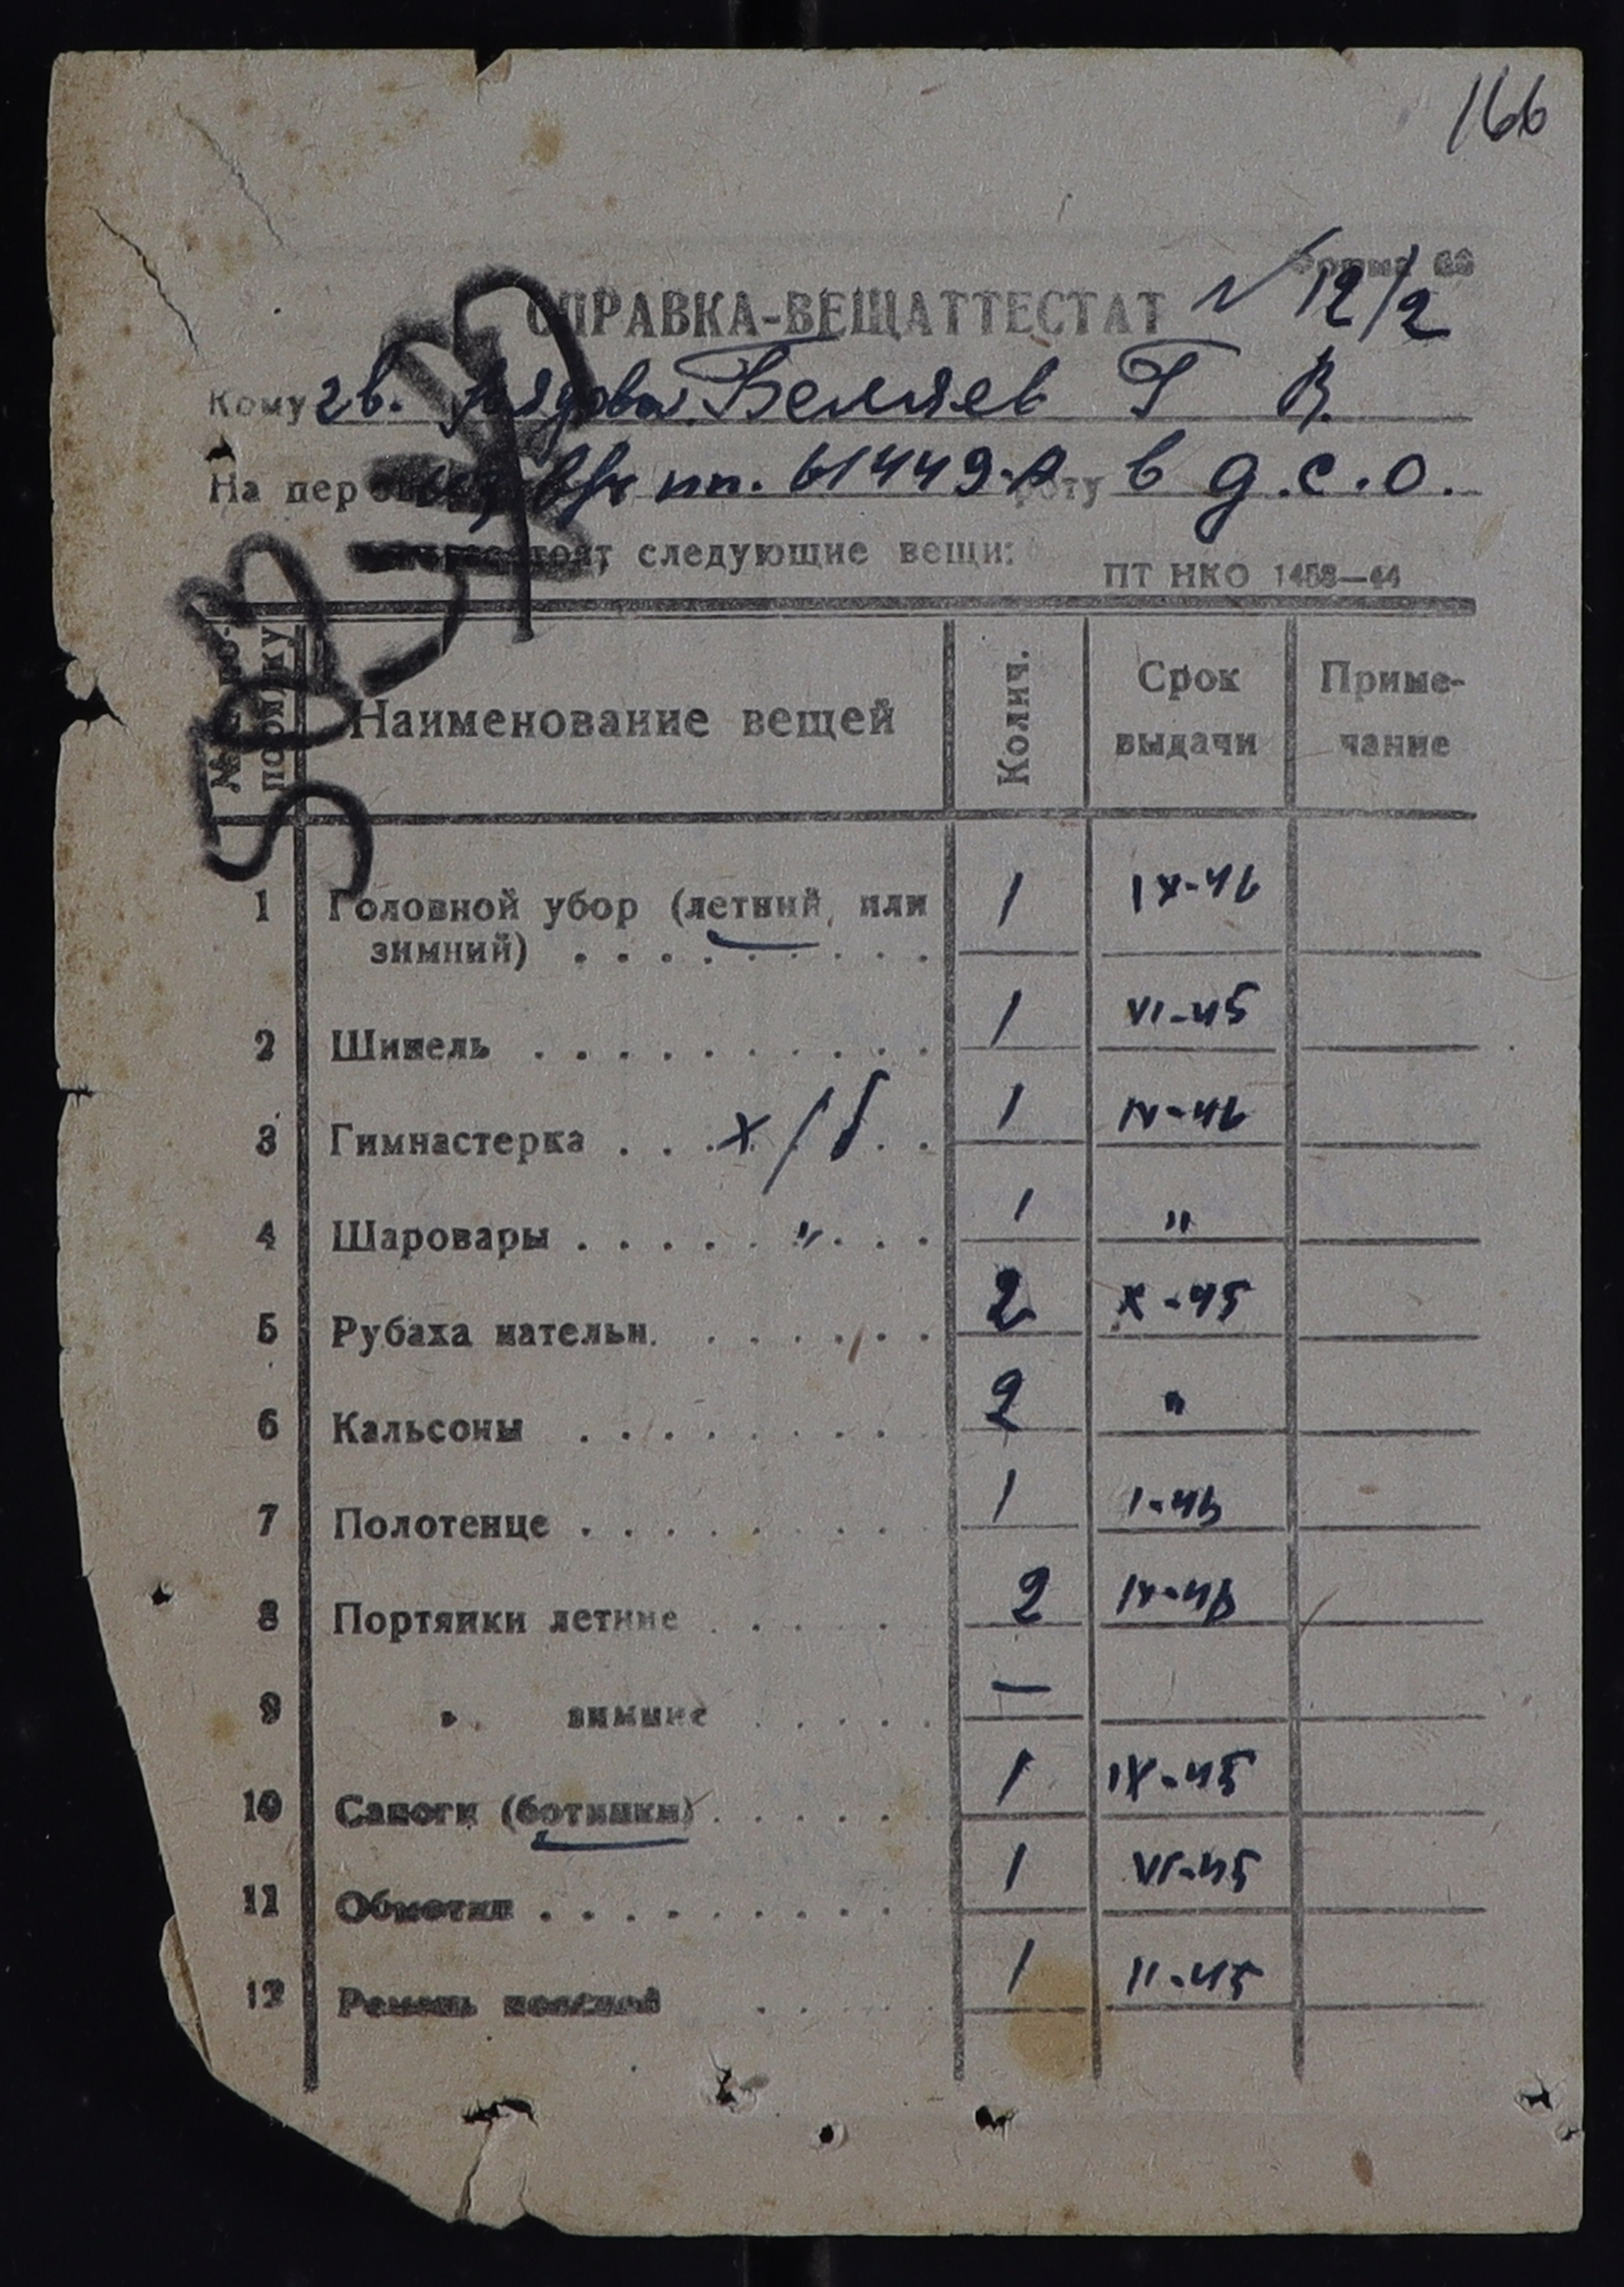 166
Форма
СПРАВКА-ВЕЩАТТЕСТАТ № 12/2
Кому гв. рядовой Беляев Г В.
На пер пп. 61449-А роту в д.с.о.
следующие вещи:
ПТ НКО 1458—44
№№ по порядку Наименование вещей Колич. Срок выдачи Приме-чание
1 Головной убор (летний, или 1 IV-46
зимний) . . . . . . . . .
2 Шинель . . . . . . . . . . 1 VI-45
3 Гимнастерка . . . х/б . . 1 IV-46
4 Шаровары . . . . . " . . . 1 "
5 Рубаха нательн. . . . . . . 2 X-45
6 Кальсоны . . . . . . . . 2 "
7 Полотенце . . . . . . . . 1 I-46
8 Портянки летние . . . . . 2 IV-46
9 » зимние . . . . . —
10 Сапоги (ботинки) . . . . . . 1 IX-45
11 Обмотки . . . . . . . . . 1 VI-45
12 Ремень поясной . . . . . 1 II-45